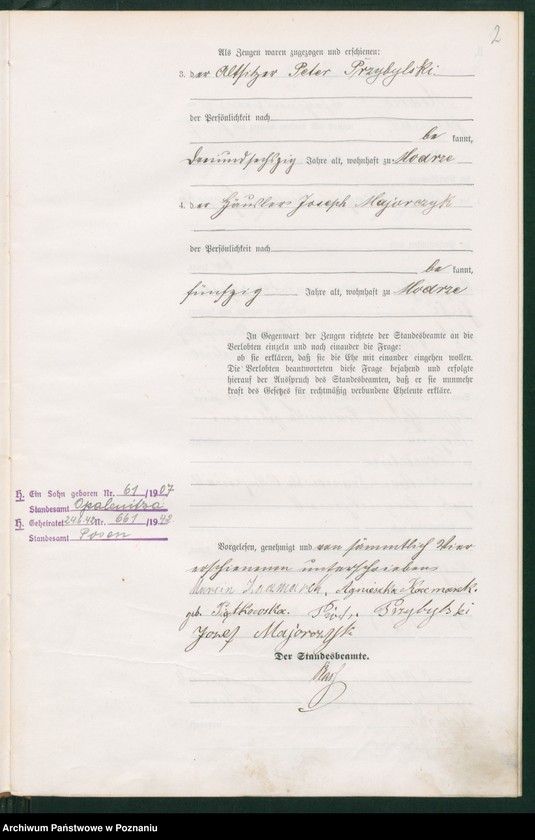 2
Als Zeugen waren zugezogen und erschienen:
3. der Altsitzer Peter Przybylski
der Persönlichkeit nach
be kannt,
dreiundsechszig Jahre alt, wohnhaft zu Modrze
4. der Häusler Joseph Majorczyk
der Persönlichkeit nach
be kannt,
fünfzig Jahre alt, wohnhaft zu Modrze
In Gegenwart der Zeugen richtete der Standesbeamte an die
Verlobten einzeln und nach einander die Frage:
ob sie erklären, daß sie die Ehe mit einander eingehen wollen.
Die Verlobten beantworteten diese Frage bejahend und erfolgte
hierauf der Ausspruch des Standesbeamten, daß er sie nunmehr
kraft des Gesetzes für rechtmäßig verbundene Eheleute erkläre.
H. Ein Sohn geboren Nr. 61 /1907
Standesamt Opalenitza
H. Geheiratet 24.6.42 Nr. 661 /1942
Standesamt Posen
Vorgelesen, genehmigt und von sämmtlich vier
erschienenen unterschrieben
Marcin Kaczmarek, Agnieszka Kaczmarek
geb. Piątkowska. Piotr Przybylski
Jozef Majorczyk
Der Standesbeamte.
Archiwum Państwowe w Poznaniu